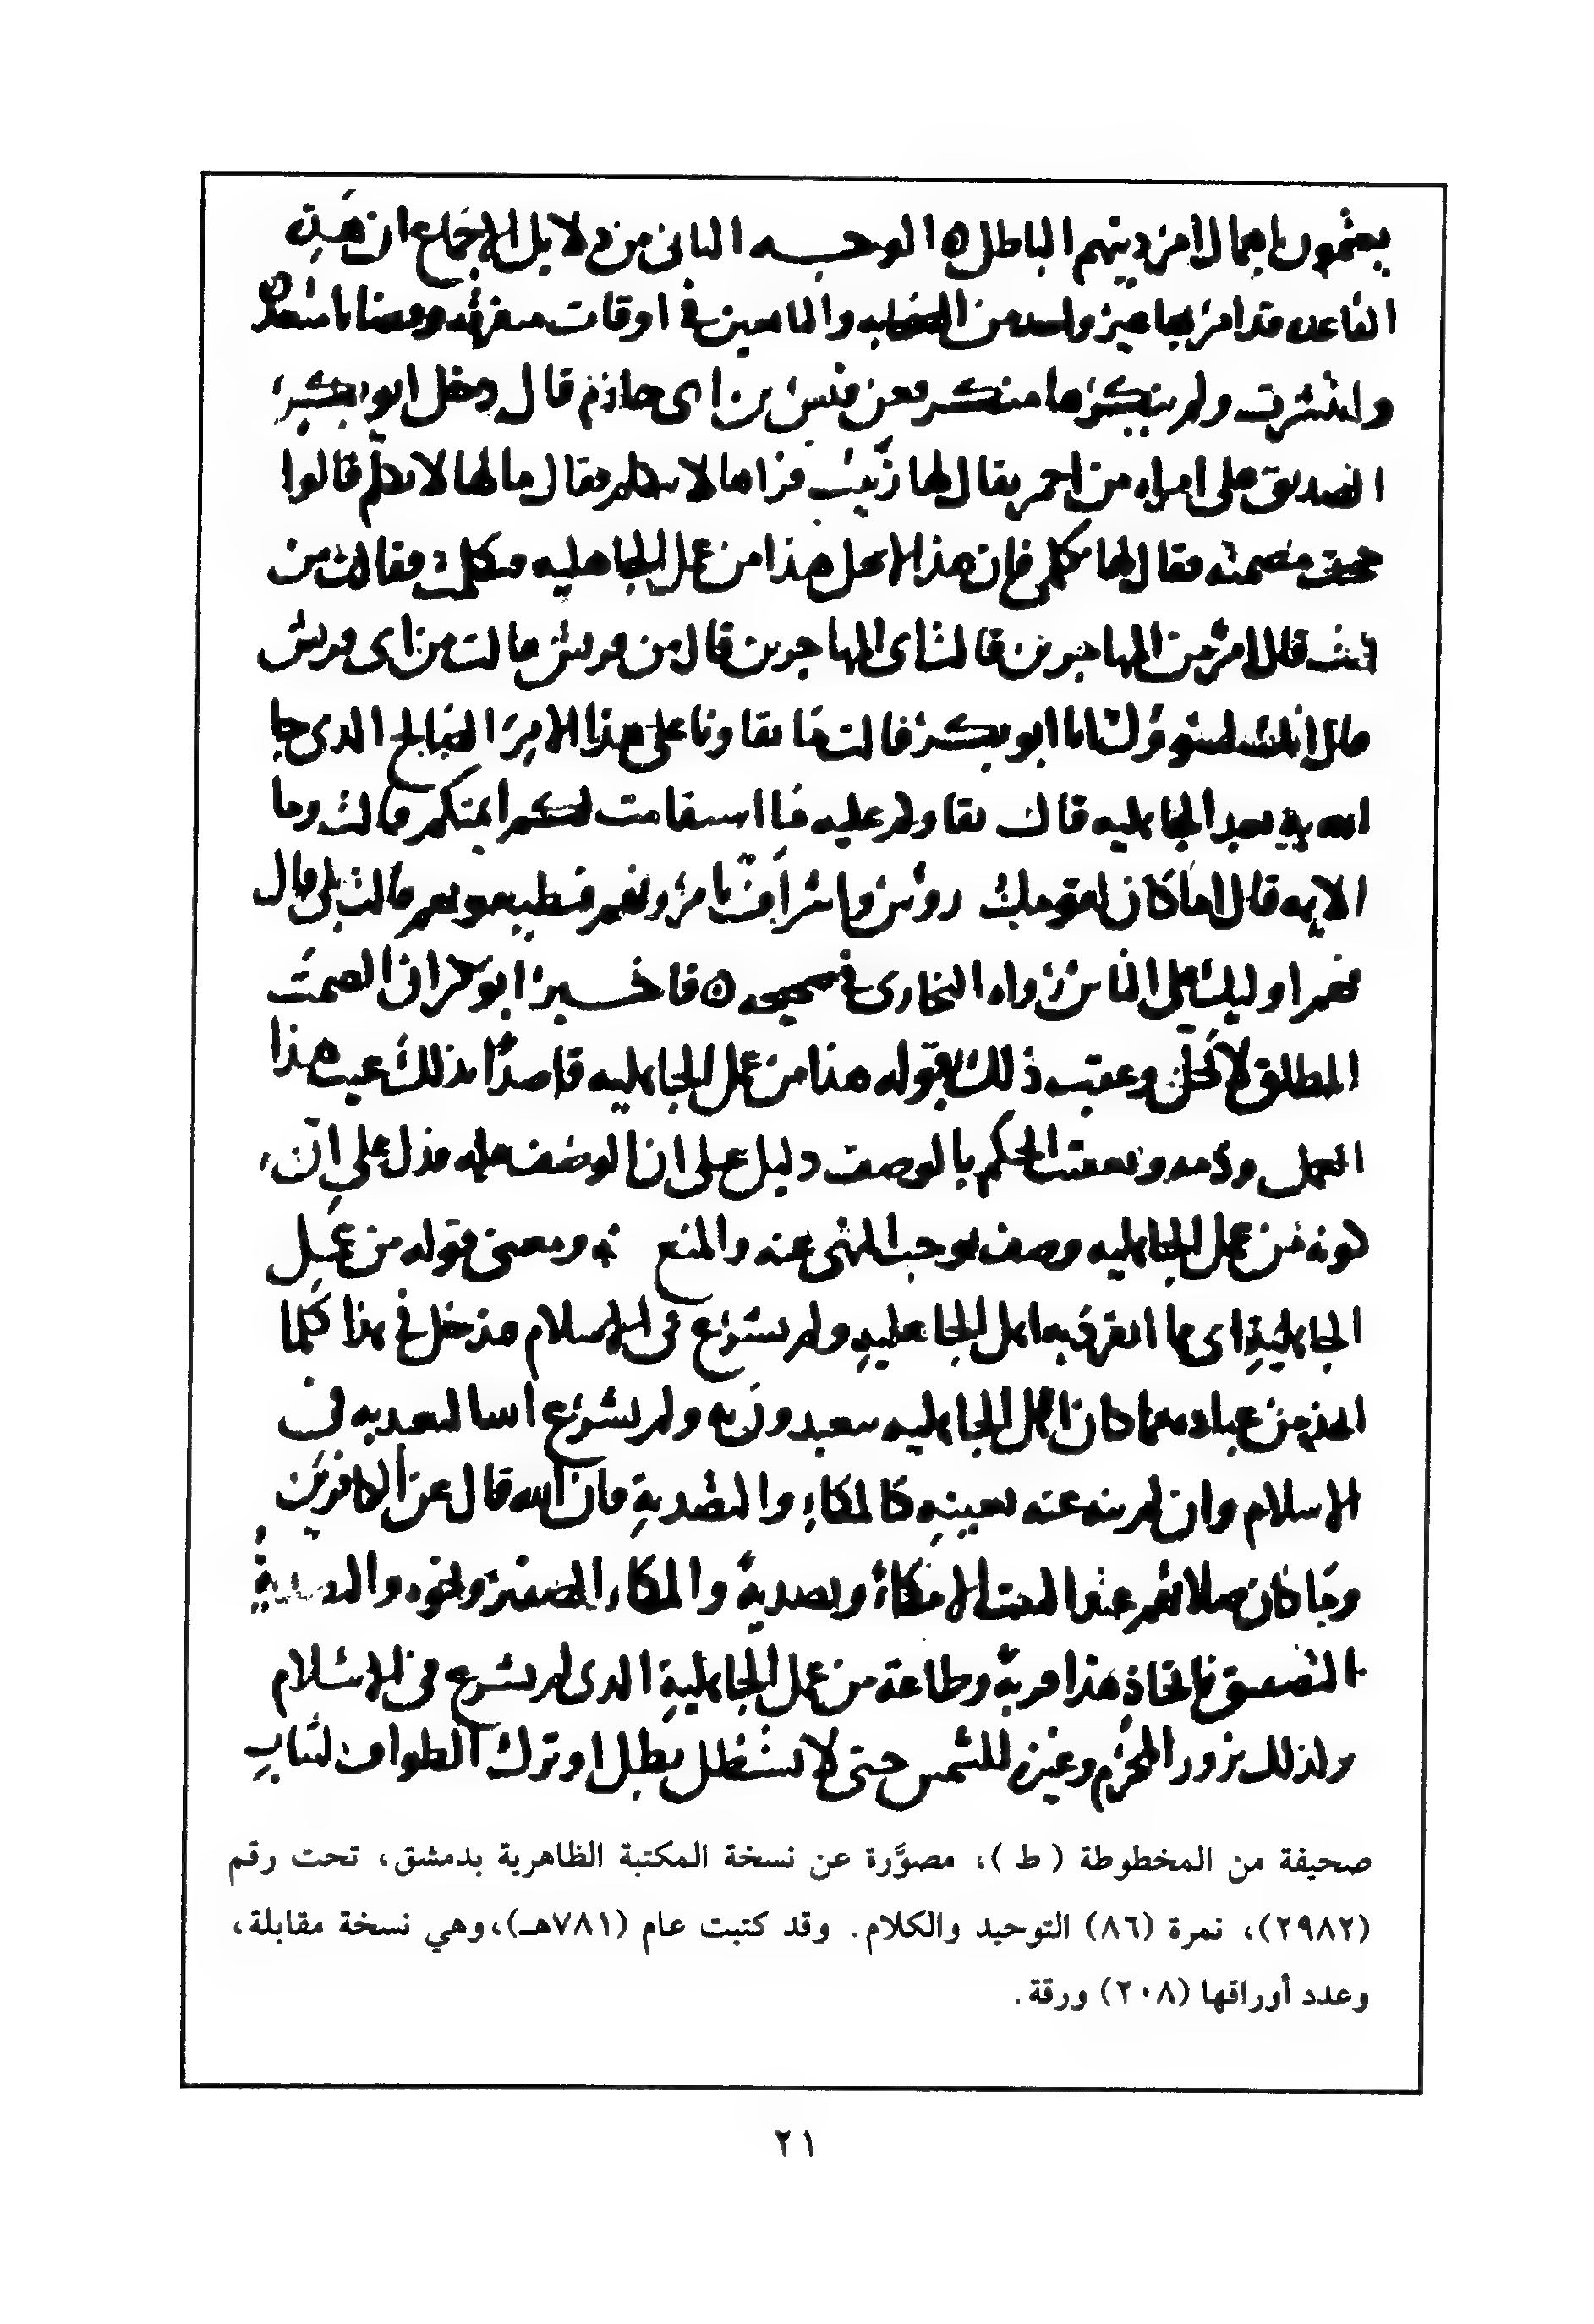 يعتمون باهمالا من دينهم الباطل ٥ الوجه الثاني من دلايل الاجماع ان هذه
القاعده قد امر بها غير واحد من الصحابه والتابعين في اوقات متفرقه وقضايا متعدده
وانتشرت ولم ينكرها منكر فعن قيس بن ابى حازم قال دخل ابو بكر
الصديق على امراه من احمس يقال لها زينب فراها لا تتكلم فقال ما لها لا تتكلم قالوا
حجت مصمتة فقال لها تكلمى فإن هذا لا يحل هذا من عمل الجاهليه فتكلمت فقالت من
انت قال امرؤ من المهاجرين قالت اى المهاجرين قال من قريش قالت من اى قريش
قال انك لسئول انا ابو بكر قالت ما بقاونا على هذا الامر الصالح الذى جا
الله به بعد الجاهليه قال بقاوكم عليه ما استقامت لكم ايمتكم قالت وما
الايمه قال اما كان لقومك روس واشراف يامرونهم فيطيعونهم قالت بلى قال
فهم اوليك على الناس رواه البخارى في صحيحه ٥ فاخبر ابو بكر ان الصمت
المطلق لا يحل وعقب ذلك بقوله هذا من عمل الجاهليه قاصدًا بذلك عيب هذا
العمل وذمه وتعقيب الحكم بالوصف دليل على ان الوصف علة فدل على ان
كونه من عمل الجاهليه وصف يوجب النهى عنه والمنع منه ومعنى قوله من عمل
الجاهلية اى مما انفرد به اهل الجاهلية ولم يشرع فى الاسلام فيدخل في هذا كلما
اتخذ من عباده مما كان اهل الجاهليه يتعبدون به ولم يشرع الله التعبد به في
الاسلام وان لم ينه عنه بعينه كالمكاءِ والتصديةِ فان الله قال عن الكافرين
وما كان صلاتهم عند البيت الا مكاءً وتصديةً والمكاء الصفير ونحوه والتصديةُ
التصفيق فاتخاذ هذا قربةً وطاعة من عمل الجاهليةِ الذى لم يشرع في الاسلام
وكذلك بروز المحرم وغيره للشمس حتى لا يستظل بظل او ترك الطواف لثياب
صحيفة من المخطوطة ( ط )، مصوَّرة عن نسخة المكتبة الظاهرية بدمشق، تحت رقم
(٢٩٨٢)، نمرة (٨٦) التوحيد والكلام. وقد كتبت عام (٧٨١هـ)، وهي نسخة مقابلة،
وعدد أوراقها (٢٠٨) ورقة.
٢١